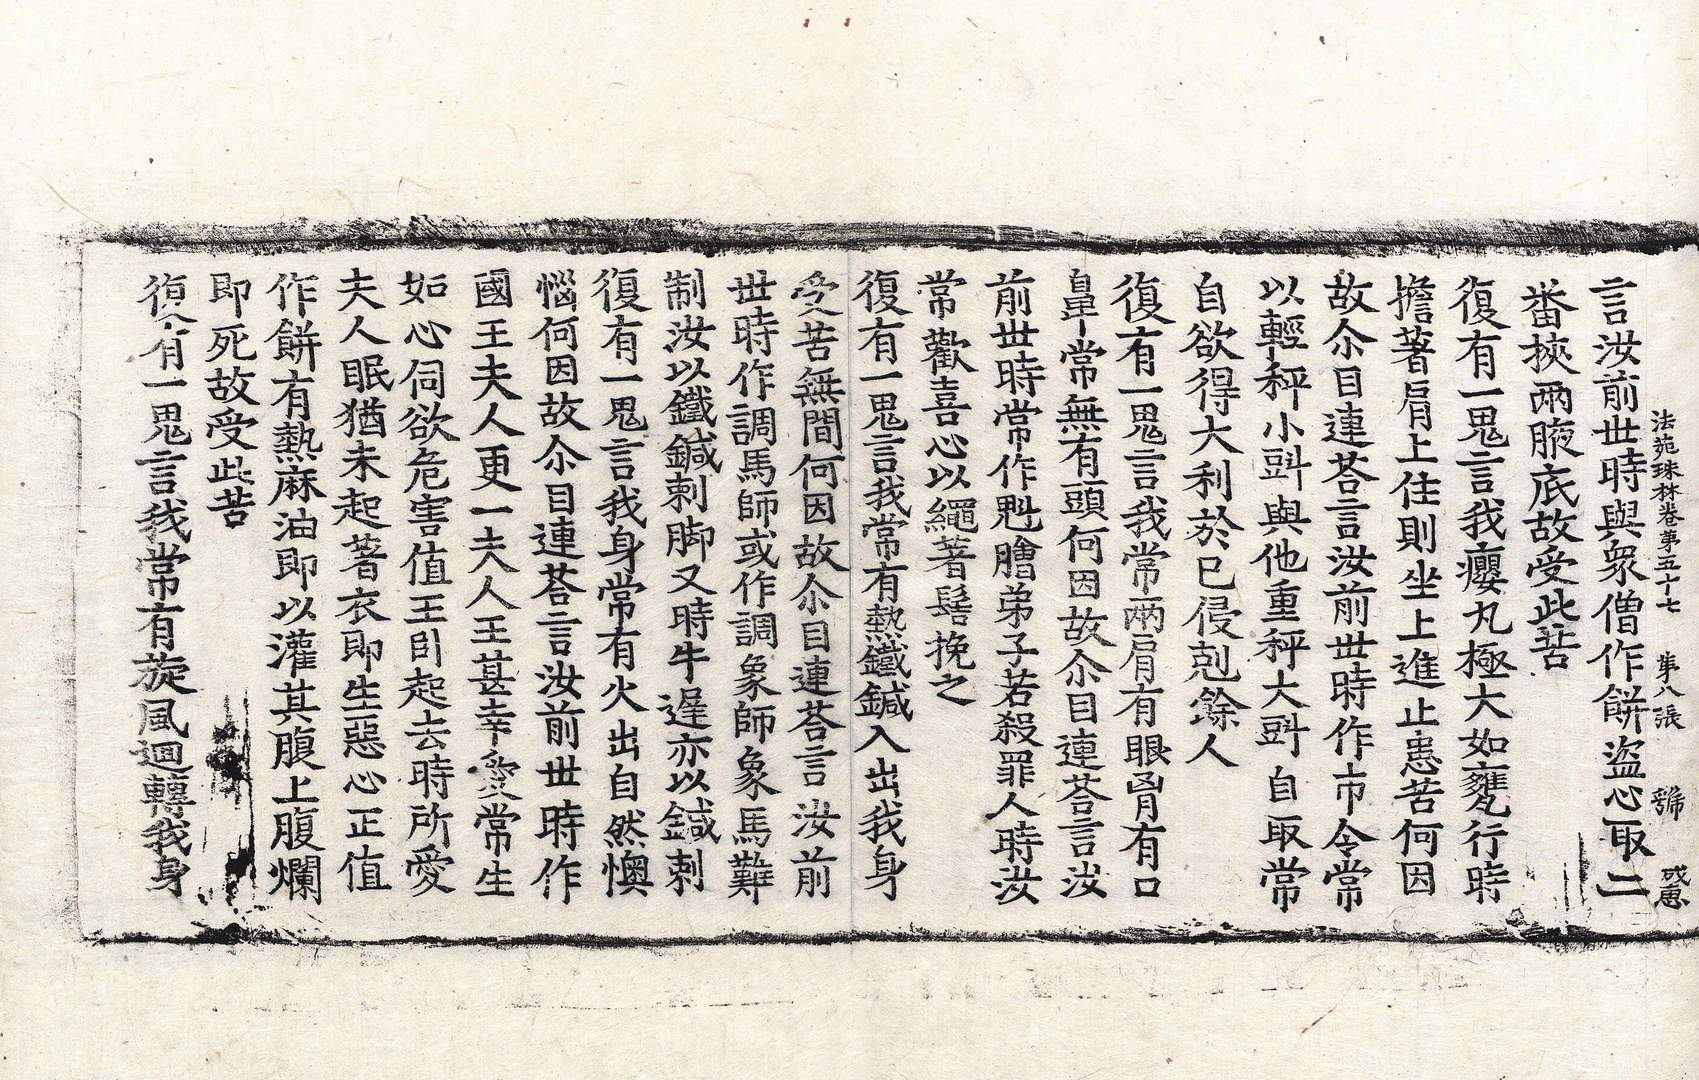 法苑珠林卷第五十七　第八張　號　戒惠
言汝前世時與衆僧作餅盜心取二
番挾兩腋底故受此苦
復有一鬼言我癭丸極大如甕行時
擔著肩上住則坐上進止患苦何因
故尒目連荅言汝前世時作市令常
以輕秤小㪷與他重秤大㪷自取常
自欲得大利於已侵剋餘人
復有一鬼言我常兩肩有眼胷有口
鼻常無有頭何因故尒目連荅言汝
前世時常作魁膾弟子若殺罪人時汝
常歡喜心以繩著髻挽之
復有一鬼言我常有熱鐵鍼入出我身
受苦無間何因故尒目連荅言汝前
世時作調馬師或作調象師象馬難
制汝以鐵鍼刺脚又時牛遲亦以鍼刺
復有一鬼言我身常有火出自然懊
惱何因故尒目連荅言汝前世時作
國王夫人更一夫人王甚幸愛常生
如心伺欲危害值王卧起去時所愛
夫人眠猶未起著衣即生惡心正值
作餅有熱麻油即以灌其腹上腹爛
即死故受此苦
復有一鬼言我常有旋風迴轉我身